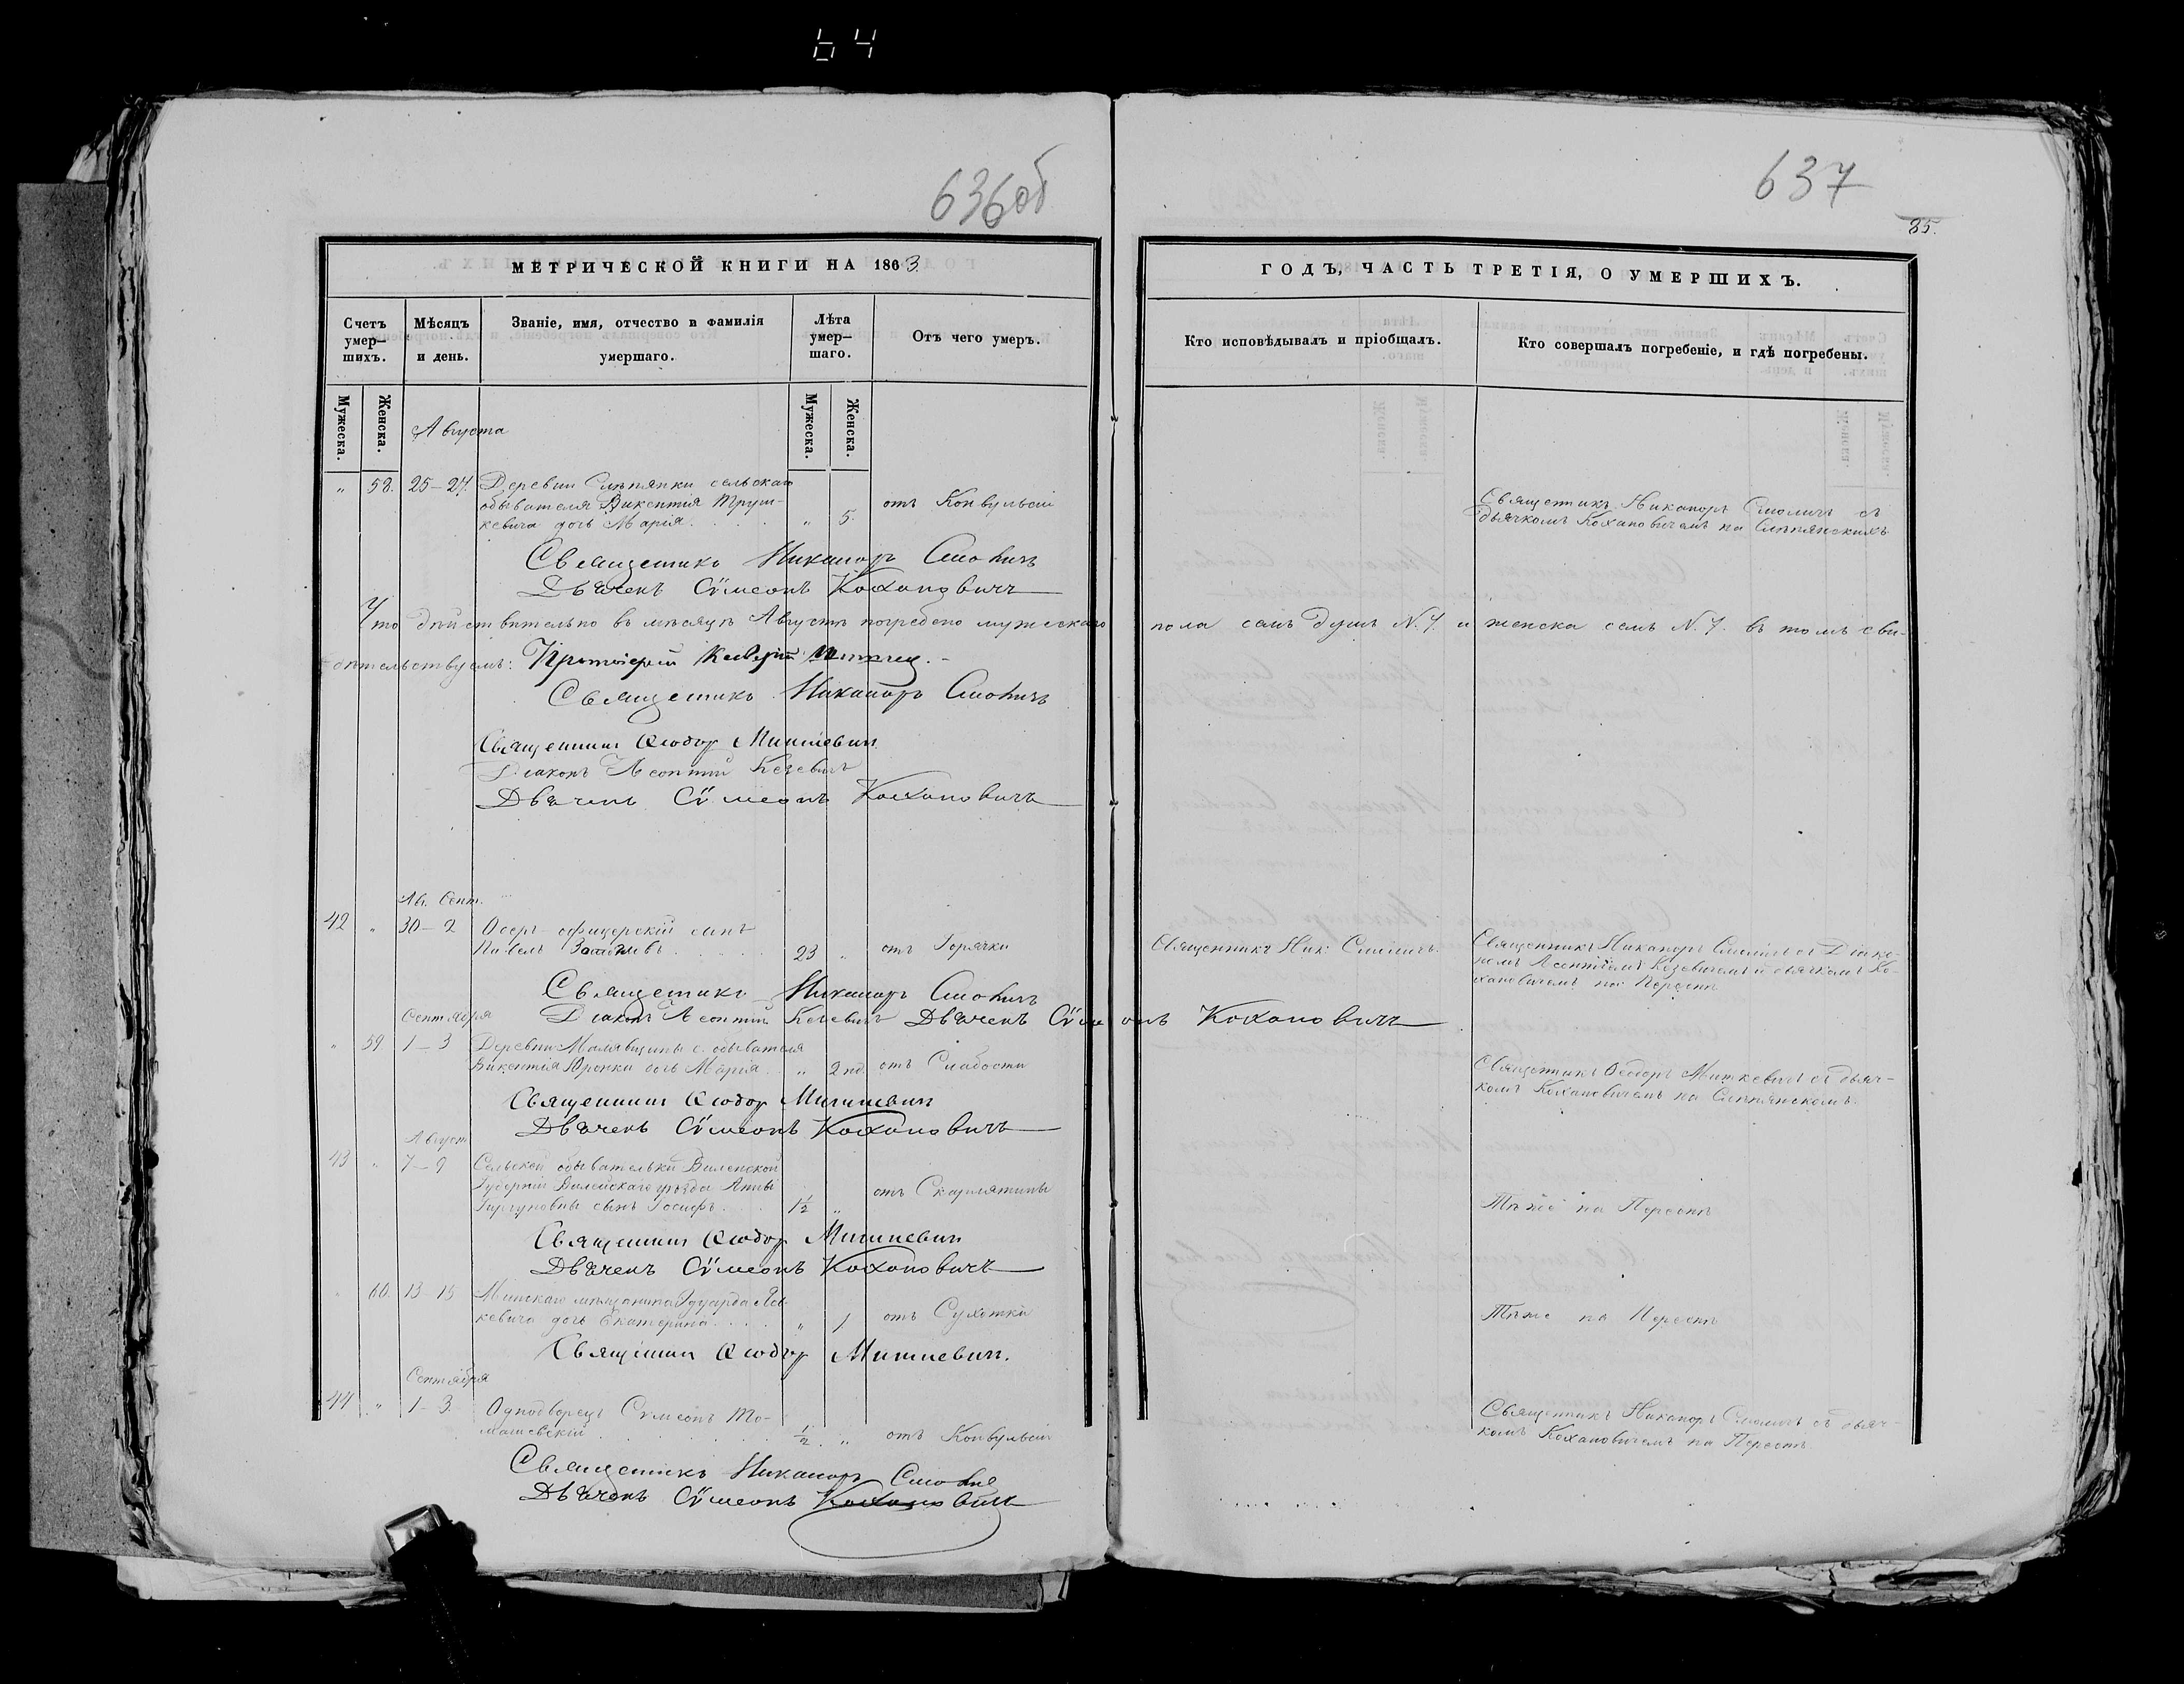 64
636об
637
85.
МЕТРИЧЕСКОЙ КНИГИ НА 1863
ГОДЪ, ЧАСТЬ ТРЕТІЯ, О УМЕРШИХЪ.
Счетъ умер-
шихъ.
Мѣсяцъ
и день.
Званіе, имя, отчество и фамилія
умершаго.
Лѣта
умер-
шаго.
Отъ чего умеръ.
Кто исповѣдывалъ и пріобщалъ.
Кто совершалъ погребеніе, и гдѣ погребены.
Мужеска.
Женска.
Мужеска.
Женска.
Августа
" 58. 25–27. Деревни Слѣпянки сельскаго
обывателя Викентія Труш-
кевича дочь Марія. " 5. отъ Конвульсій
Священникъ Никаноръ Смоличъ съ
дьячкомъ Кохановичемъ на Слѣпянскихъ
Священникъ Никаноръ Смоличъ
Дьячекъ Сѵмеонъ Кохановичъ
Что дѣйствительно въ мѣсяцѣ Августѣ погребено мужескаго пола семь душъ N. 7. и женска семь N. 7. въ томъ сви-
дѣтельствуемъ: Протоіерей
Священникъ Никаноръ Смоличъ
Священникъ Ѳеодоръ Миткевич
Діаконъ Леонтій Козевичъ
Дьячекъ Сѵмеонъ Кохановичъ
Ав. Сент.
42 " 30–2 Оберъ-офицерскій сынъ
Павелъ 23 " отъ Горячки
Священникъ Ник: Смоличъ.
Священникъ Никаноръ Смоличъ съ Діако-
номъ Леонтіемъ Козевичемъ и дьячкомъ Ко-
хановичемъ на Переспѣ
Священникъ Никаноръ Смоличъ
Діаконъ Леонтій Козевичъ Дьячекъ Сѵмеонъ Кохановичъ
Сентября
" 59 1–3 Деревни Малявщины с. обывателя
Викентія Юронки дочь Марія " 2 нд. отъ Слабости
Священникъ Ѳеодоръ Миткевичъ съ дьяч-
комъ Кохановичемъ на Слѣпянскомъ.
Священникъ Ѳеодоръ Миткевич
Дьячекъ Сѵмеонъ Кохановичъ
Август
43 " 7–9 Сельской обывательки Виленской
Губерніи Вилейскаго уѣзда Анны
сынъ Іосифъ. 1½ " отъ Скарлятины
Тѣже на Переспѣ
Священникъ Ѳеодоръ Миткевич
Дьячекъ Сѵмеонъ Кохановичъ
" 60. 13–15 Минскаго мѣщанина Эдуарда
кевича дочь Екатерина. " 1 отъ Сухотки
Тѣже на Переспѣ
Священникъ Ѳеодоръ Миткевич.
Сентября
44 " 1–3. Однодворецъ Сѵмеонъ То-
машевскій ½. " отъ Конвульсій
Священникъ Никаноръ Смоличъ съ дьяч-
комъ Кохановичемъ на Переспѣ.
Священникъ Никаноръ Смолич
Дьячекъ Сѵмеонъ Кохановичъ